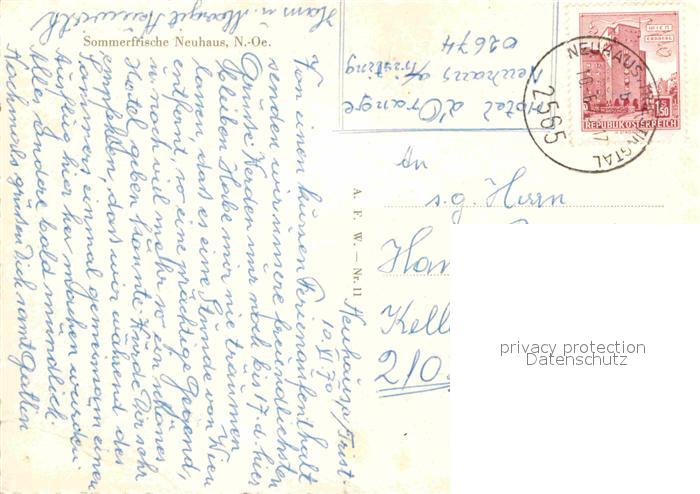 Sommerfrische Neuhaus, N.-Oe.
Neuhaus/Trist.
10.VI.70
Von unen kurzen Ferienaufenthalt
senden wir unsere freundlichsten
Grüsse. Werden nur noch bis 17.d. hier
bleiben. Habe mir nie träumen
lassen, dass es eine Stunde von Wien
entfernt, so eine prächtige Gegend,
u. noch viel mehr so ein schönes
Hotel geben könnte. Würde Dir sehr
empfehlen, dass wir während des
Sommers einmal gemeinsam einen
Ausflug hier her machen würden.
Alles Andere bald mündlich.
Nochmals grüssen Dich samt Gatten
Hans u.
A. F. W. — Nr. 11
Hotel d'Orange
Neuhaus a/Tristing
02674
WIEN
ERDBERG
1.50
REPUBLIK ÖSTERREICH
NEUHAUS
TINGTAL
2565
An
s. g. Herrn
Han
Kell
2/0
privacy protection
Datenschutz